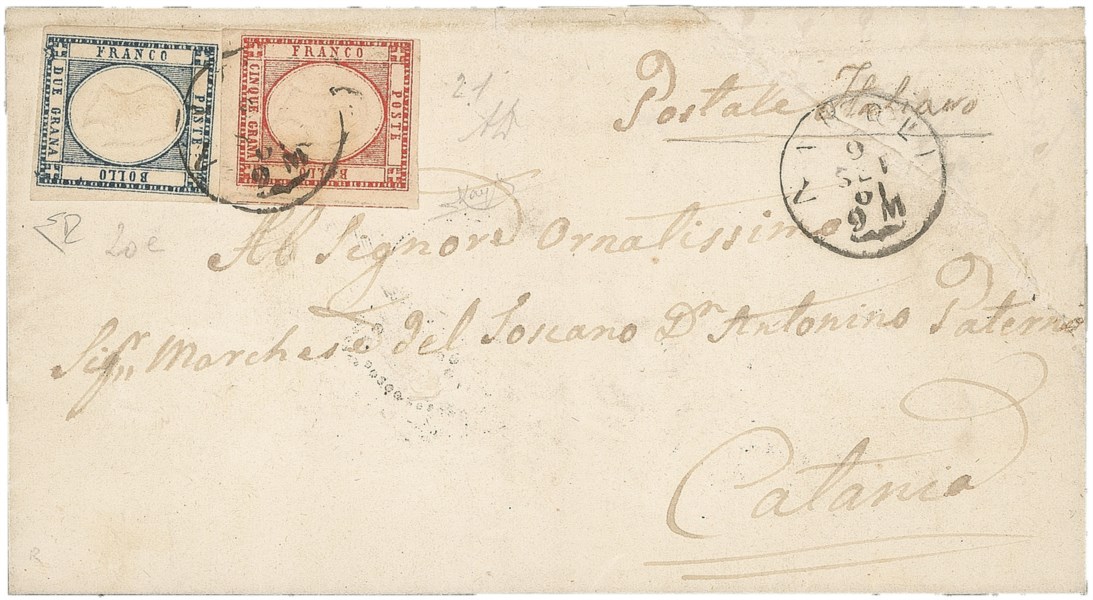 FRANCO
POSTE
BOLLO
DUE GRANA
FRANCO
POSTE
BOLLO
CINQUE GRANA
21
Postale Italiano
NAPOLI
6
SET
61
9 M
9 M
20c
Al Signore Ornatissimo
Marchese del Toscano Dn Antonino Paternò
Catania
R